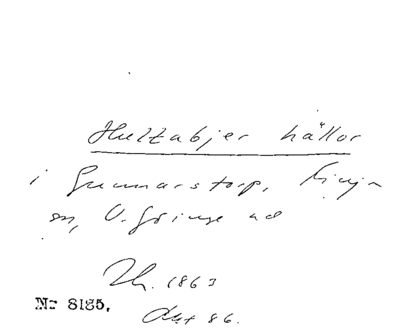 Hultabjer hällor
i Gunnarstorp, Finja
sn, V. Göinge hd
1863
Nr 8185.
86.